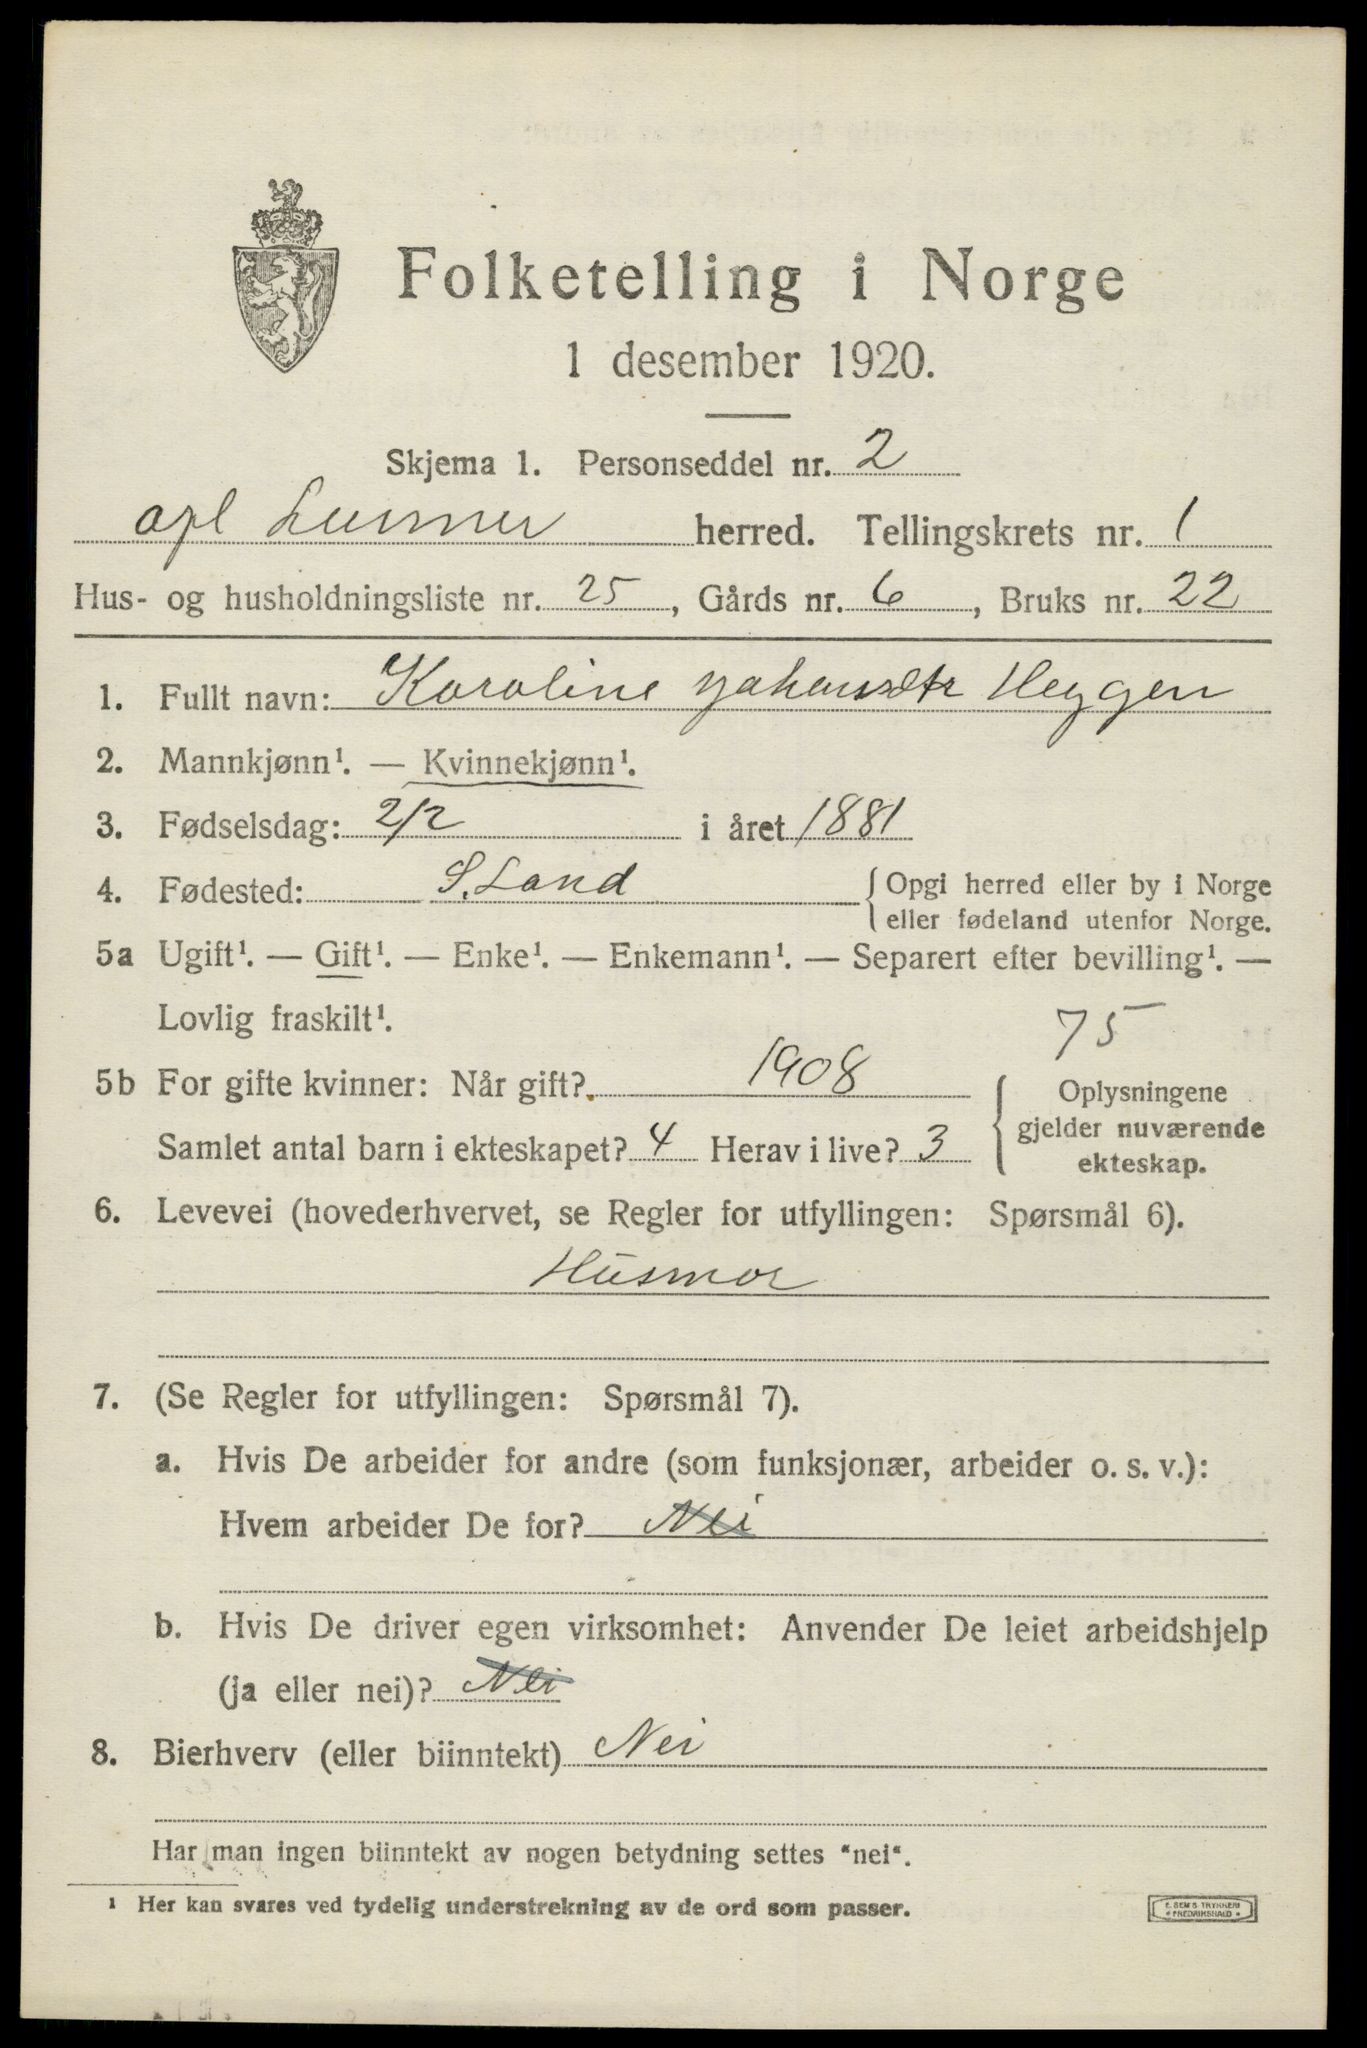 Folketelling i Norge
1 desember 1920.
Skjema 1. Personseddel nr. 2
opl Lunner herred. Tellingskrets nr. 1
Hus- og husholdningsliste nr. 25, Gårds nr. 6, Bruks nr. 22
1. Fullt navn: Karoline Heggen
2. Mannkjønn¹. — Kvinnekjønn¹.
3. Fødselsdag: 2/2 i året 1881
4. Fødested: S. Land {Opgi herred eller by i Norge
eller fødeland utenfor Norge.
5a Ugift¹. — Gift¹. — Enke¹. — Enkemann¹. — Separert efter bevilling¹. —
Lovlig fraskilt¹.
75
5b For gifte kvinner: Når gift? 1908
Samlet antal barn i ekteskapet? 4 Herav i live? 3
Oplysningene
gjelder nuværende
ekteskap.
6. Levevei (hovederhvervet, se Regler for utfyllingen: Spørsmål 6).
Husmor
7. (Se Regler for utfyllingen: Spørsmål 7).
a. Hvis De arbeider for andre (som funksjonær, arbeider o. s. v.):
Hvem arbeider De for? Nei
b. Hvis De driver egen virksomhet: Anvender De leiet arbeidshjelp
(ja eller nei)? Nei
8. Bierhverv (eller biinntekt) Nei
Har man ingen biinntekt av nogen betydning settes "nei".
¹ Her kan svares ved tydelig understrekning av de ord som passer.
E. SEM S TRYKKERI
FREDRIKSHALD